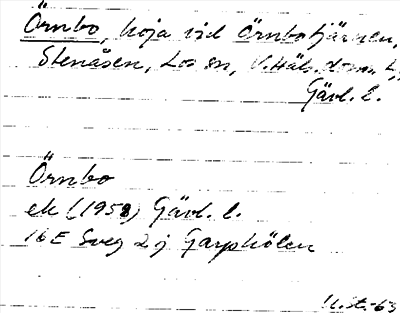 Örnbo, koja vid Örnbotjärnen,
Stenåsen, Los sn, V. Häls. doms.,
Gävl. l.
Örnbo
ek (1958) Gävl. l.
16E Sveg 2 j Garphölen
11.st.-63